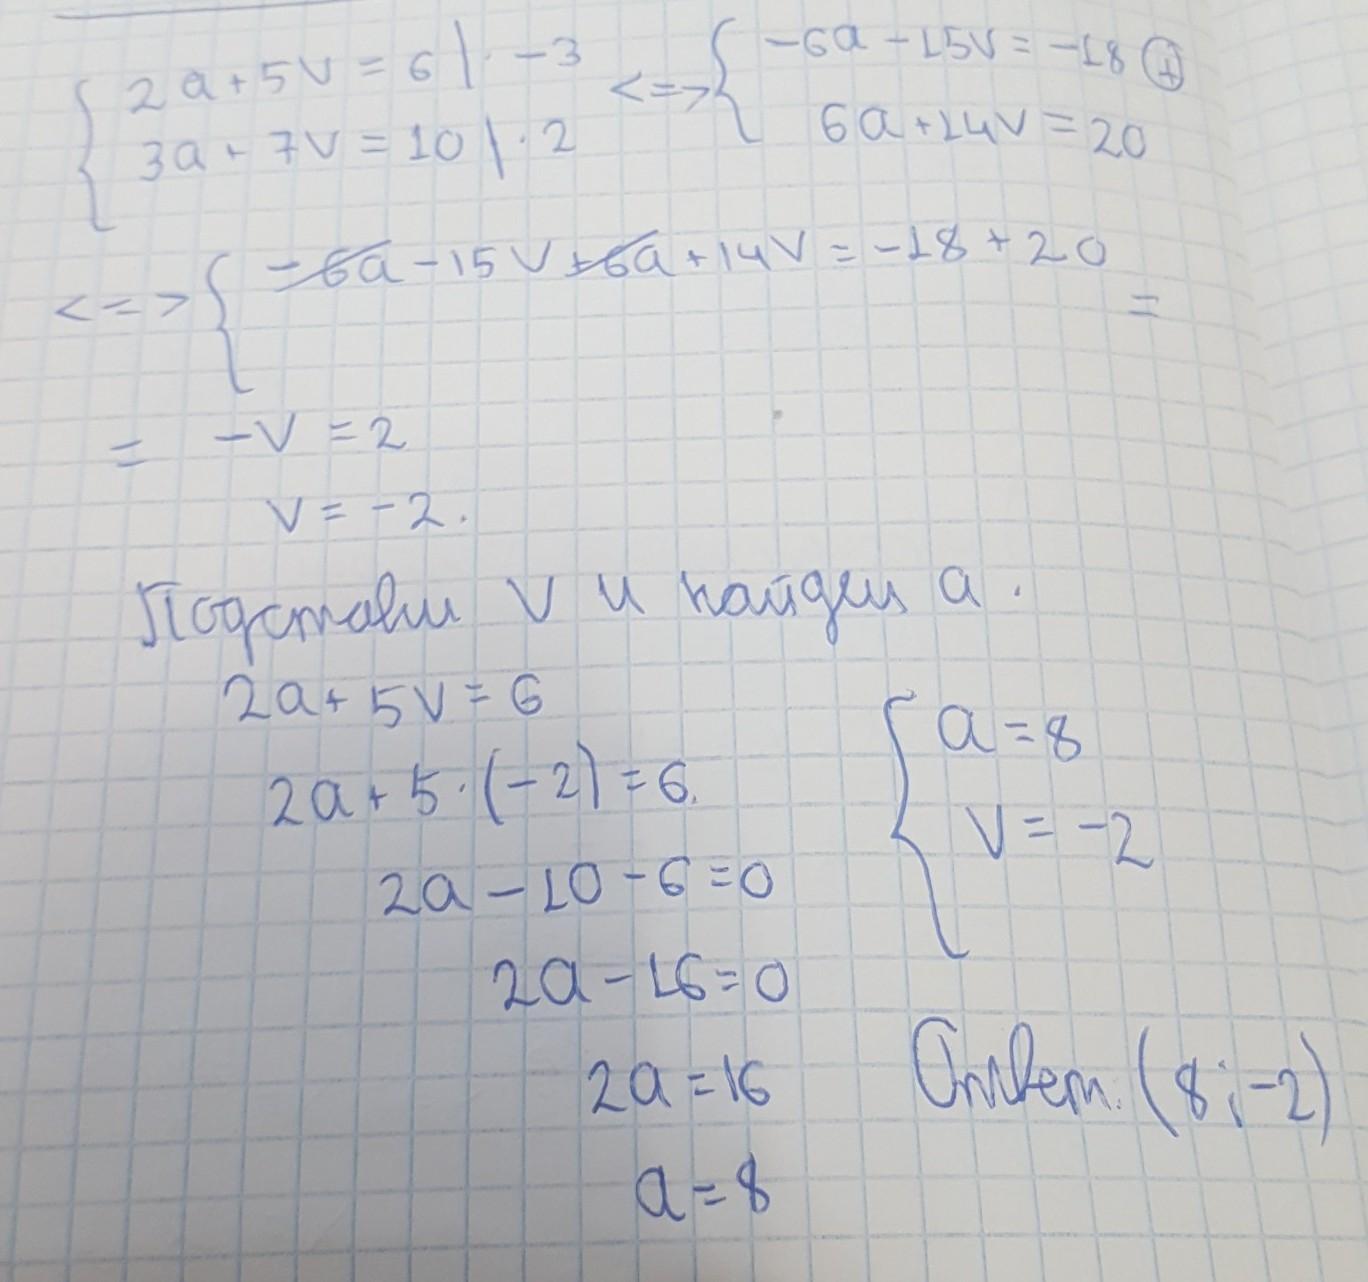 2a + 5v = 6 | · -3 <=> { -6a - 15v = -18 (+)
3a + 7v = 10 | · 2 6a + 14v = 20
<=> { -6a - 15v + 6a + 14v = -18 + 20 =
= -v = 2
v = -2.
Подставим v и найдем a.
2a + 5v = 6
2a + 5 · (-2) = 6
2a - 10 - 6 = 0
2a - 16 = 0
2a = 16
a = 8
{ a = 8
v = -2
Ответ: (8; -2)